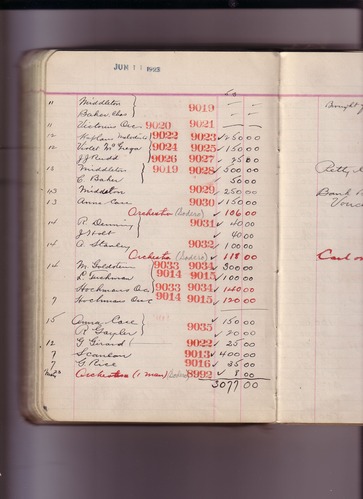 JUN 11 1923
50
11 Middleton } 9019 — —
Baker Chas — —
11 Victorins Orc 9020 9021 — —
12 Kaplans Melodists } 9022 9023 ✓ 250 00
12 Violet McGregor 9024 9025 ✓ 150 00
J J Rudd } 9026 9027 ✓ 75 00
12 Middleton } 9019 9028 ✓ 500 00
C Baker ✓ 50 00
13 Middleton 9029 ✓ 250 00
13 Anna Case 9030 ✓ 150 00
Orchestra (Bodero) ✓ 106 00
14 R Denning } 9031 ✓ 40 00
J Holt ✓ 40 00
14 A Stanley 9032 ✓ 100 00
Orchestra (Bodero) ✓ 118 00
14 M Goldstein } 9033 9034 ✓ 300 00
L Fuchman 9014 9015 ✓ 100 00
Hochmans Orc } 9033 9034 ✓ 140 00
7 Hochman Orc 9014 9015 ✓ 120 00
15 Anna Case } 9035 ✓ 150 00
R Gayler ✓ 20 00
12 G Girard 9022 ✓ 25 00
7 Scanlan 9013 ✓ 400 00
7 G Rice 9016 ✓ 35 00
Orchestra (1 man) (Bodero) 8992 ✓ 8 00
3077 00
Brought f
Petty
Bank
Vouc